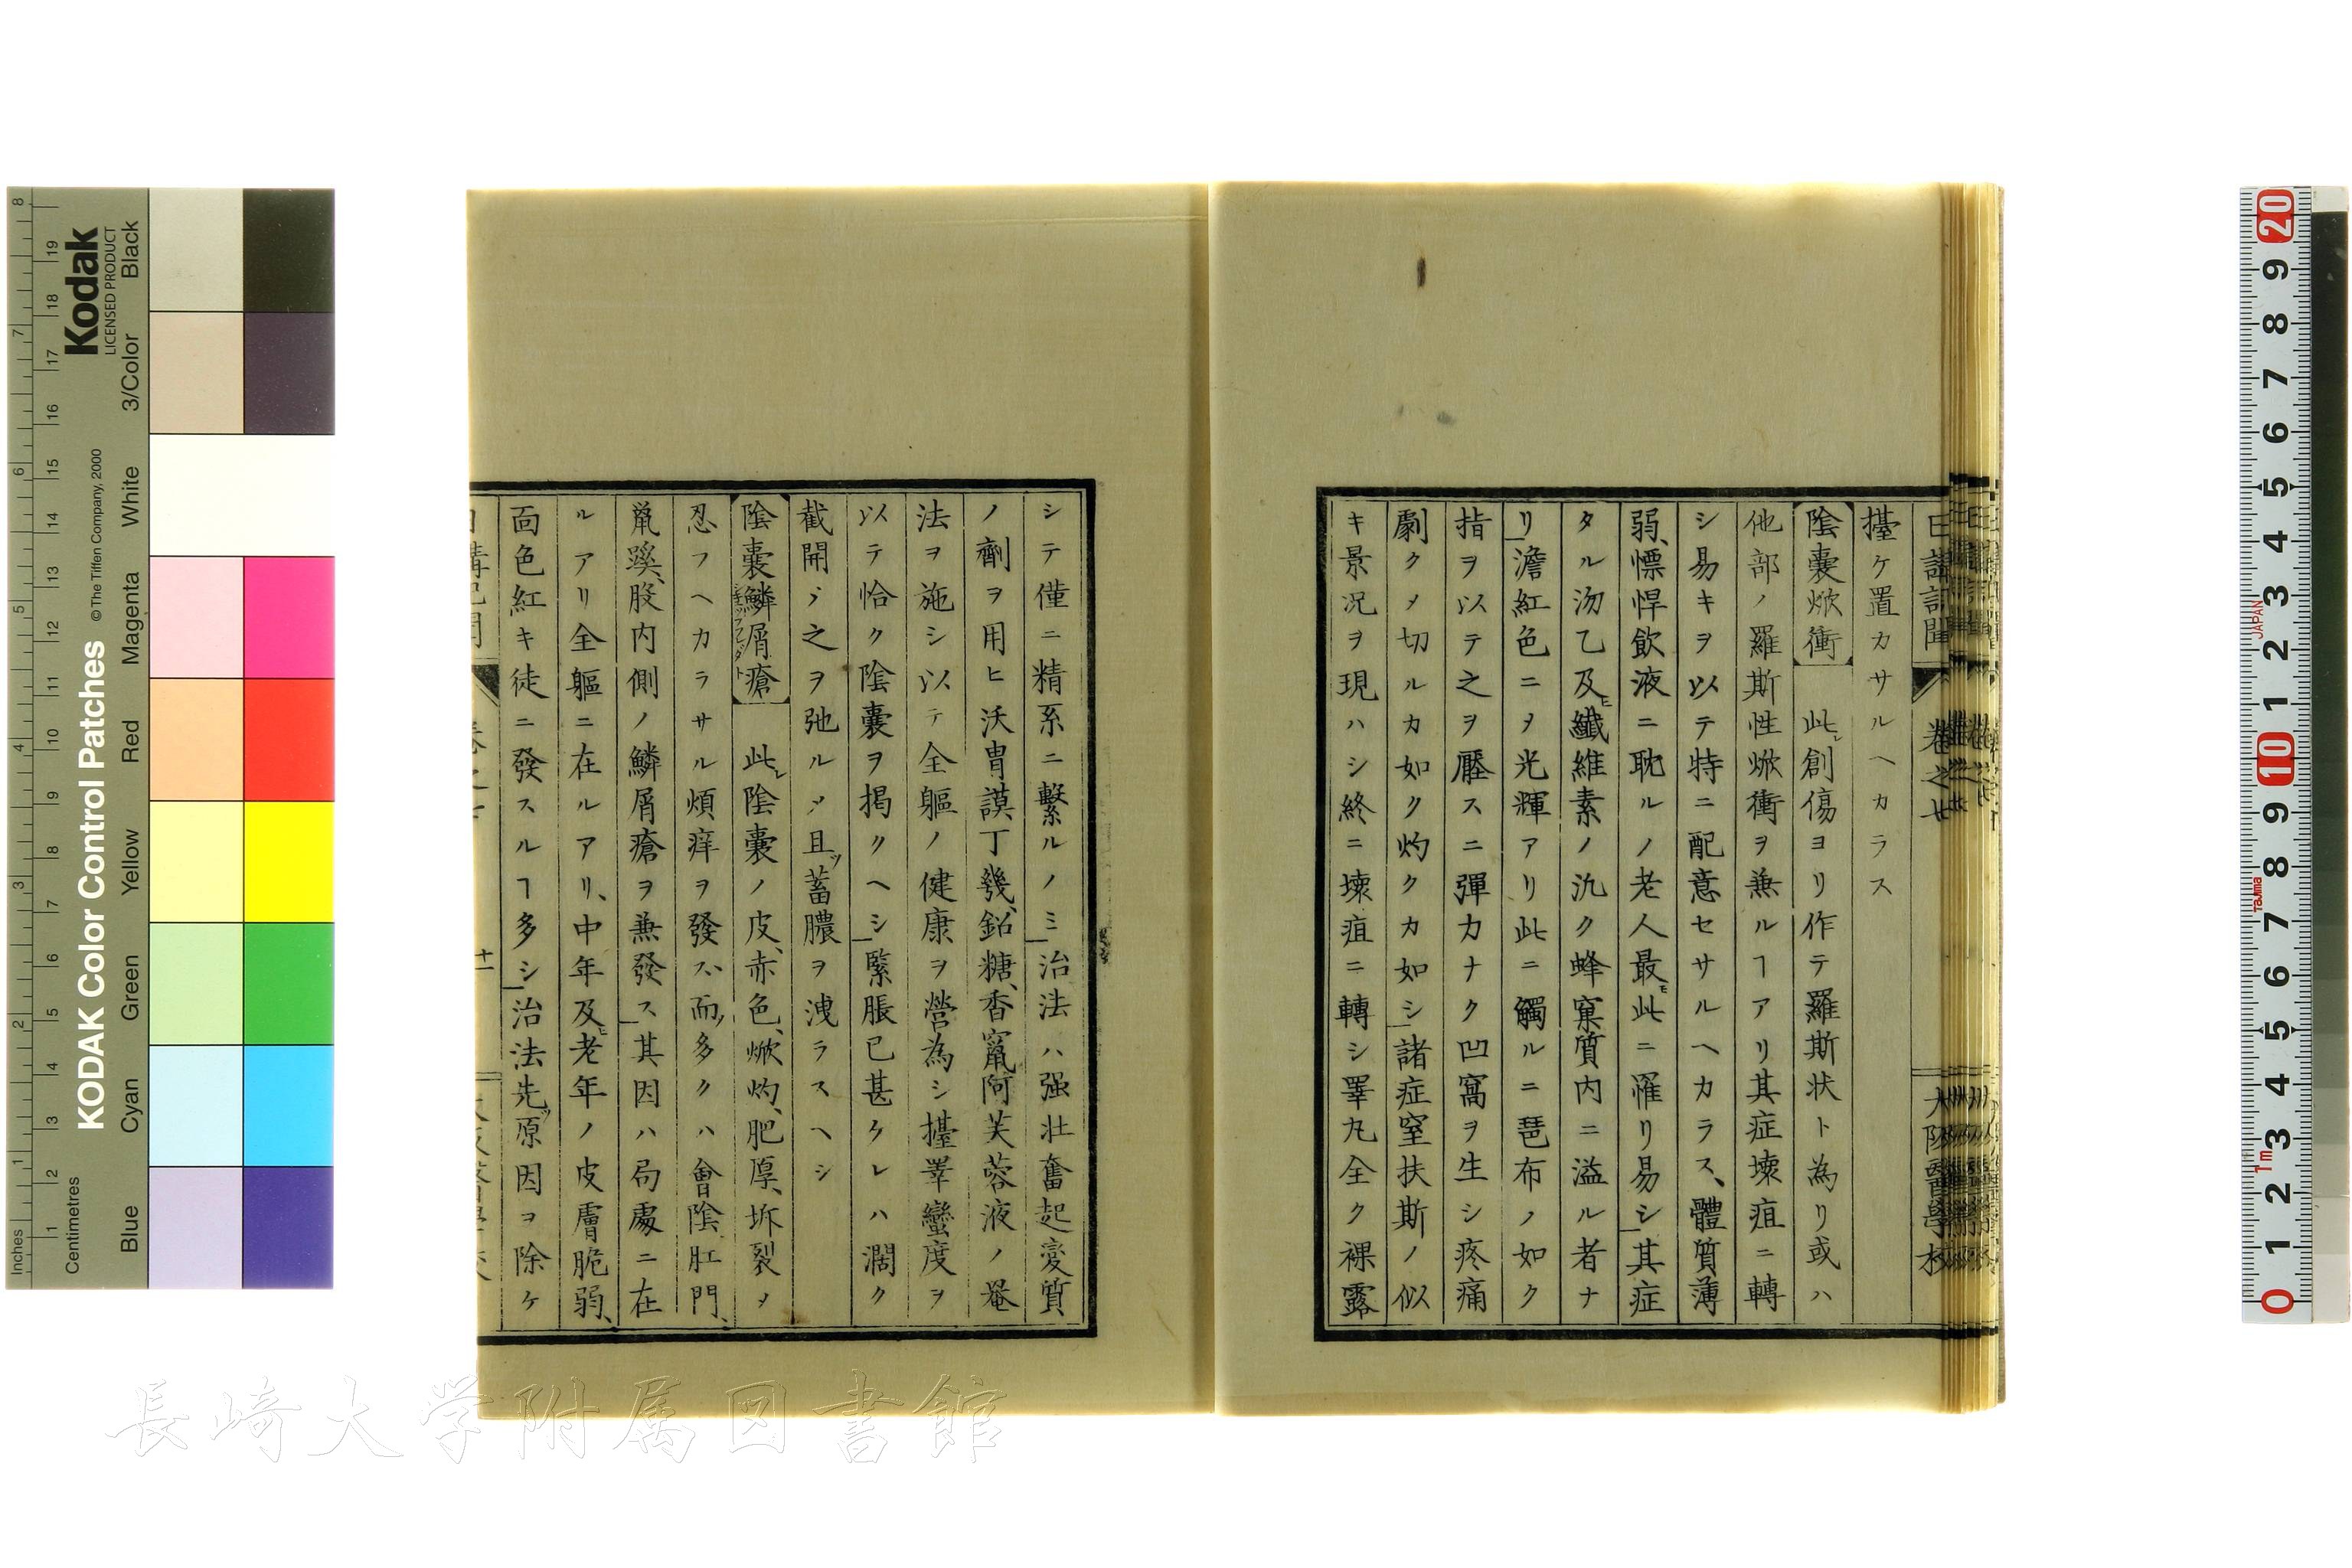 擡ケ置カサルヘカラス
陰囊焮衝 此創傷ヨリ作テ羅斯状ト為リ或ハ
他部ノ羅斯性焮衝ヲ兼ルヿアリ其症壊疽ニ轉
シ易キヲ以テ特ニ配意セサルヘカラス、體質薄
弱、慓悍飲液ニ耽ルノ老人最モ此ニ罹リ易シ其症
タル沕乙及ヒ纎維素ノ氿ク蜂窠質内ニ溢ル者ナ
リ澹紅色ニ乄光輝アリ此ニ觸ルニ琶布ノ如ク
指ヲ以テ之ヲ壓スニ彈力ナク凹窩ヲ生シ疼痛
劇ク乄切ルカ如ク灼クカ如シ諸症窒扶斯ノ似
キ景况ヲ現ハシ終ニ壊疽ニ轉シ睪丸全ク裸露
シテ僅ニ精系ニ繫ルノミ治法ハ强壮奮起変質
ノ劑ヲ用ヒ沃胄謨丁幾、鉛糖、香竄阿芙蓉液ノ罨
法ヲ施シ以テ全軀ノ健康ヲ營為シ擡睪蠻度ヲ
以テ恰ク陰囊ヲ揭クヘシ緊脹已甚ケレハ濶ク
截開シ之ヲ弛ル乄且ツ蓄膿ヲ洩ラスヘシ
陰囊鱗屑瘡 此レ陰囊ノ皮、赤色、焮灼、肥厚、坼裂乄
忍フヘカラサル煩痒ヲ發ス、而多クハ會陰、肛門、
鼠蹊、股内側ノ鱗屑瘡ヲ兼發ス其因ハ局處ニ在
ルアリ全軀ニ在ルアリ、中年及ヒ老年ノ皮膚脆弱、
面色紅キ徒ニ發スルヿ多シ治法先ツ原因ヲ除ケ
日講記聞 卷之廿 大阪醫學校
十一
Kodak
LICENSED PRODUCT
KODAK Color Control Patches
© The Tiffen Company, 2000
Inches
Centimetres
Blue Cyan Green Yellow Red Magenta White 3/Color Black
JAPAN
Tajima
1m
長崎大学附属図書館